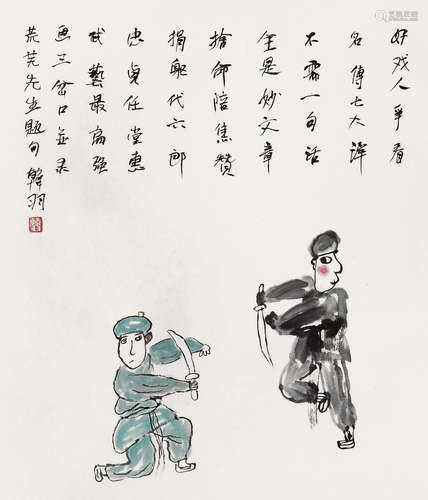 好戏人争看
名傳七大洋
不需一句话
全是妙文章
捨命陪焦贊
捐軀代六郎
忠貞任堂惠
武藝最高强
画三岔口並录
荒芜先生题句 韓羽